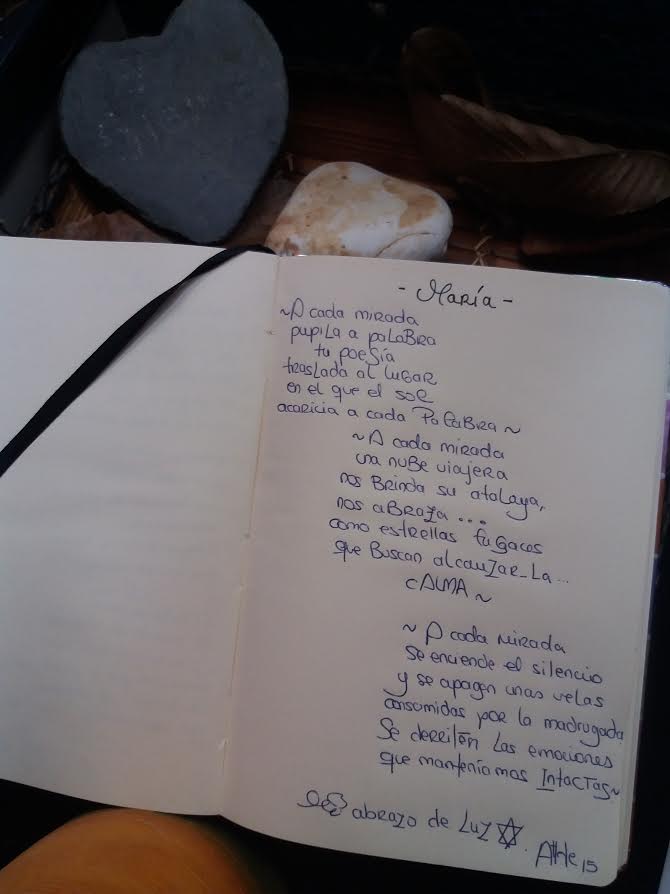 - María -
~A cada mirada
pupila a palabra
tu poesía
traslada al lugar
en el que el sol
acaricia a cada palabra~
~A cada mirada
una nube viajera
nos brinda su atalaya,
nos abraza...
como estrellas fugaces
que buscan alcanzar_la...
CALMA~
~A cada mirada
se enciende el silencio
y se apagan unas velas
consumidas por la madrugada
Se derriten las emociones
que manteníamos Intactas~
abrazo de Luz
15